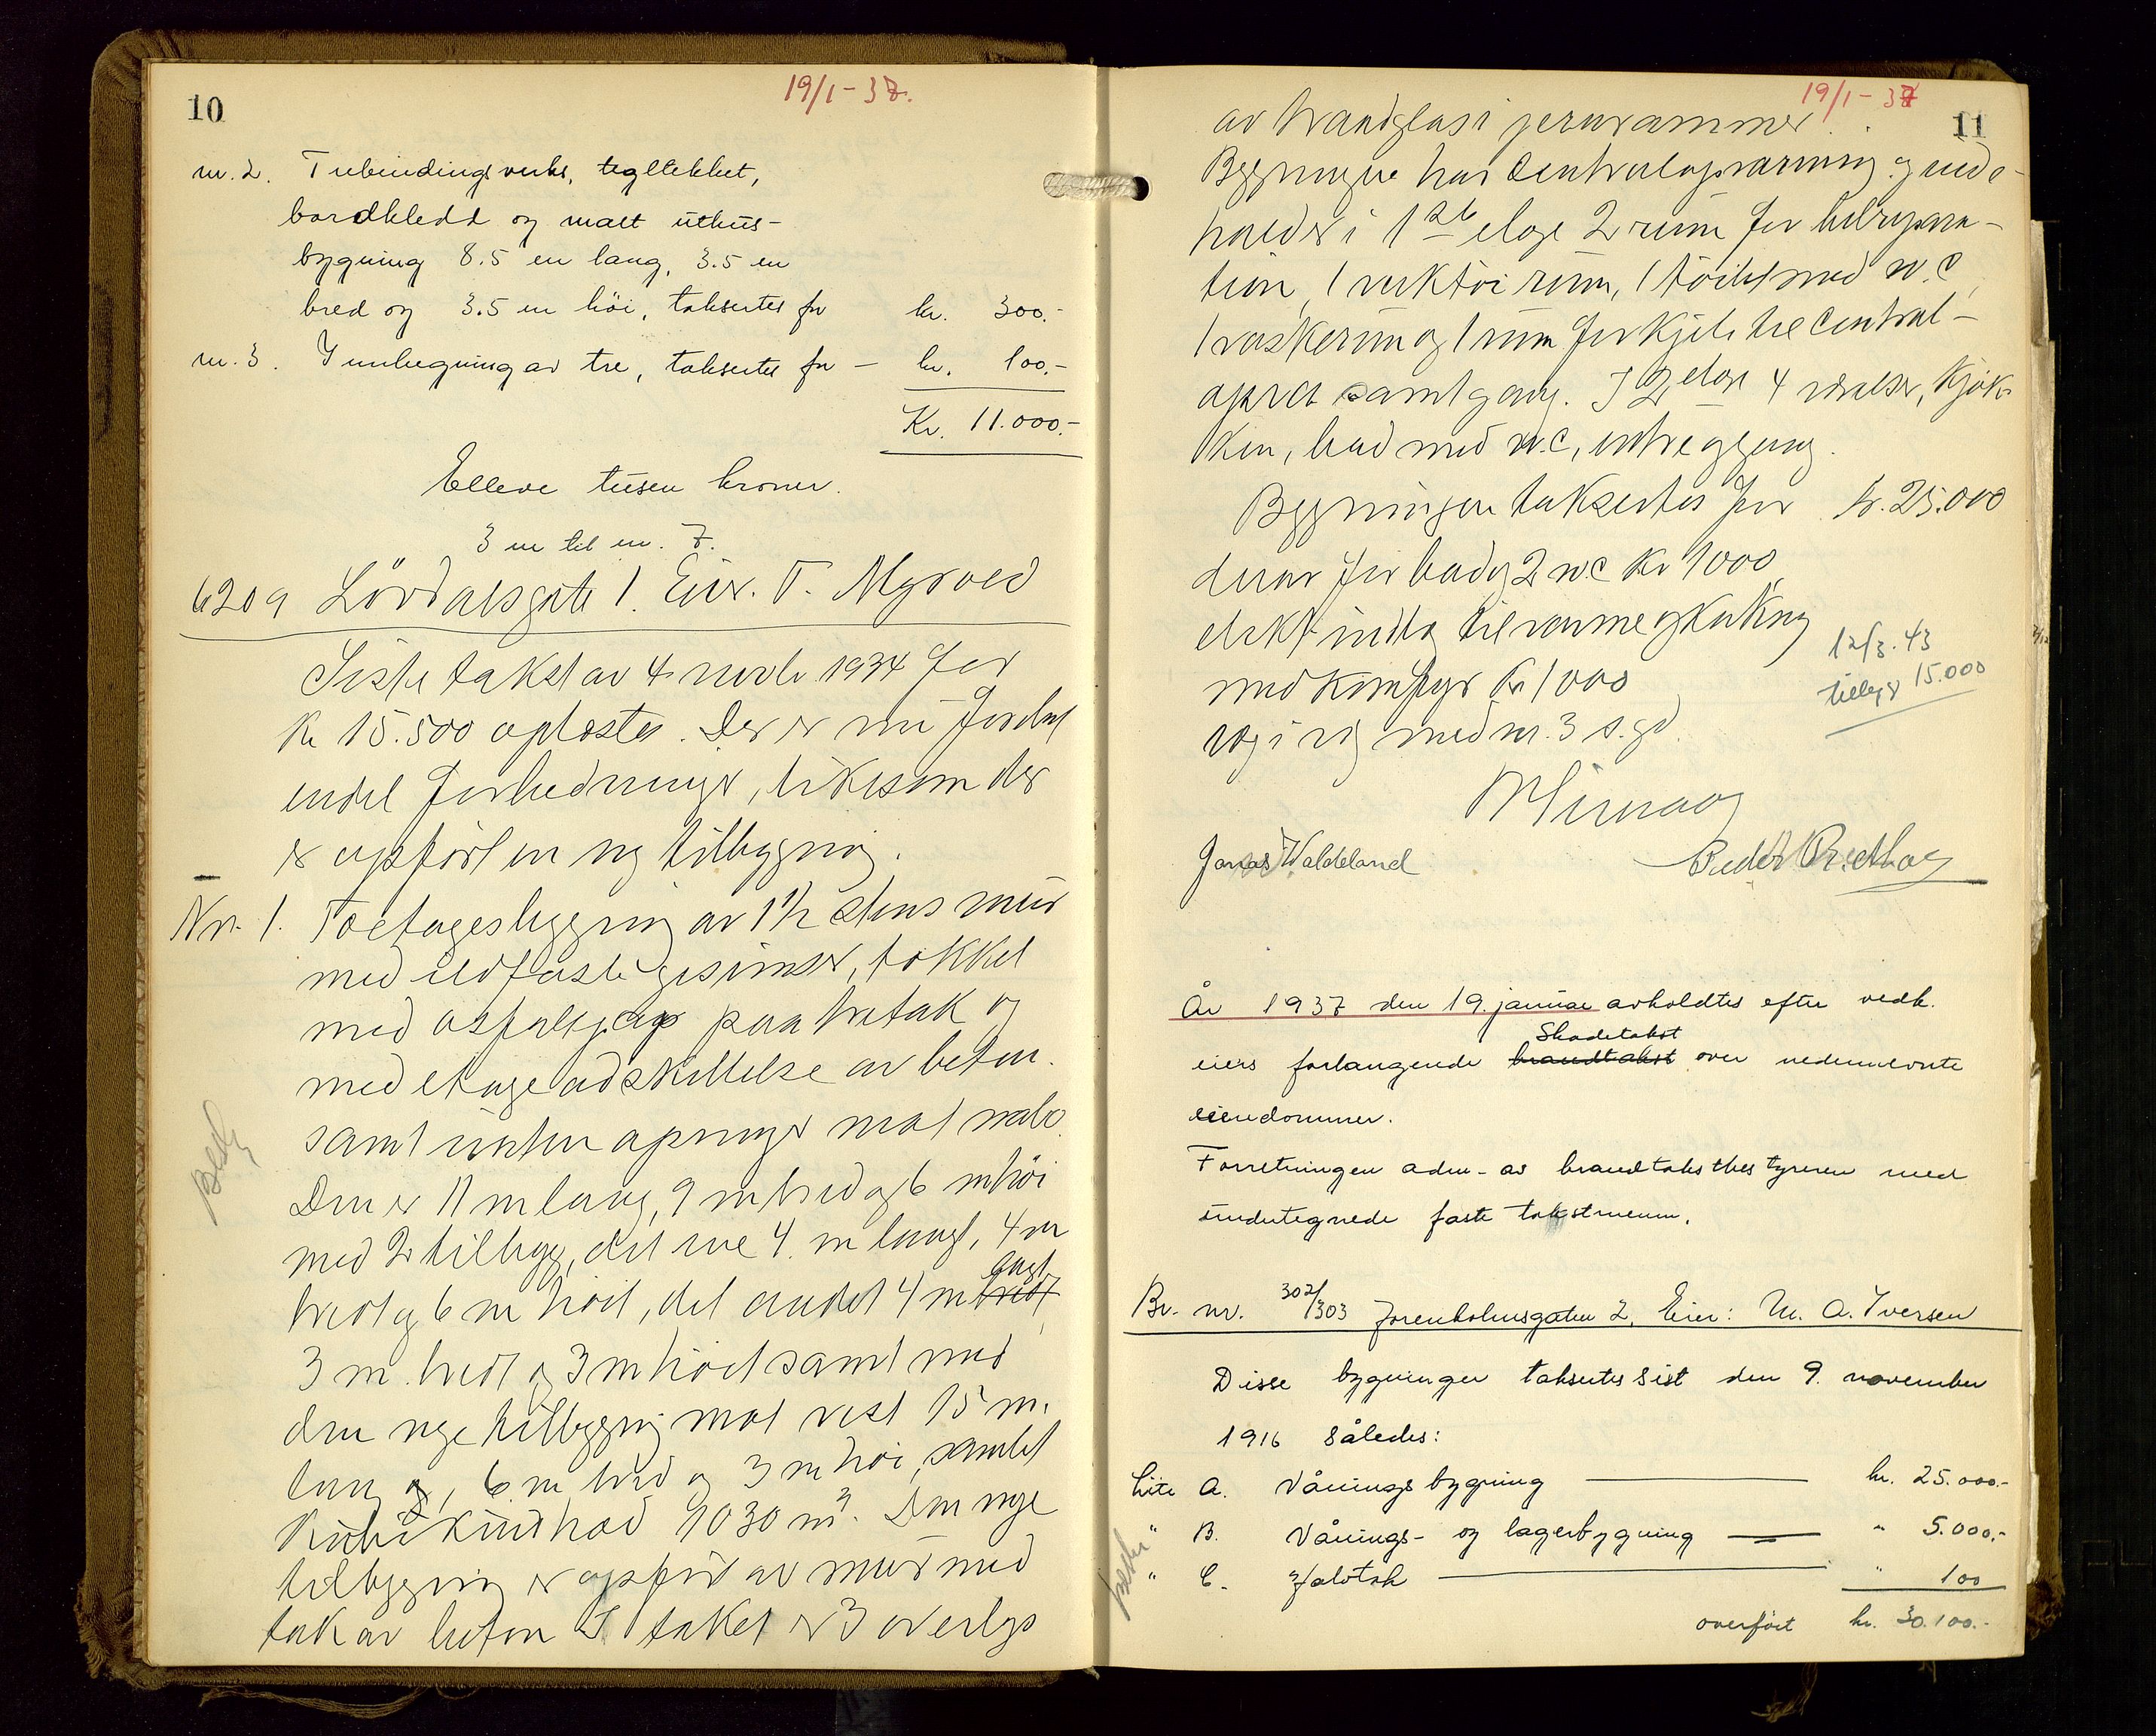 10
19/1-37.
nr. 2. Trebindingsverks, tegltekket,
bordkledd og malt uthus-
bygning 8.5 m lang, 3.5 m
bred og 3.5 m höi, takseres for kr. 300.-
nr. 3. Innhegning av tre, takseres for - kr. 100.-
Kr. 11.000.-
Elleve tusen kroner.
3 m til nr. 7.
6209 Lövdalsgate 1. Eier. T. Myrvold
Siste takst av 4. novbr 1934 for
Kr 15.500 oplæstes. Der er nu foretat
endel forbedringer, likesom der
er opfört en ny tilbygning.
Nr. 1. Toetagesbygning av 1 1/2 stens mur
med ildfaste gesimser, tækket
med asfaltpap paa tretak og
med etageadskillelse av beton
samt uten apninger mot nabo.
Den er 11 m lang, 9 m bred og 6 m höi
med 2 tilbygg, det ene 4 m langt, 4 m
bredt og 6 m höit, det andet 4 m bredt langt
3 m bredt og 3 m höit samt med
den nye tilbygning mot vest 15 m.
lang, 6 m bred og 3 m höi, samlet
Kubikindhold 1030 m³. Den nye
tilbygning er opfört av mur med
tak av beton I taket er 3 overlys
19/1-37
11
av traadglas i jernrammer.
Bygningen har centralopvarming og inde-
holder i 1ste etage 2 rum for bilrepara-
tion, 1 verktöi rum, 1 toilet med w.c,
1 vaskerum og 1 rum for kjele til central-
apvar samt gang. I 2 etage 4 værelser, kjök-
ken, bad med w.c, entre og gang.
Bygningen takseres for kr. 25.000
derav for bad og 2 w.c kr 1000
elekt. indlæg til varme og koking
med komfyr Kr 1000
væg i væg med nr. 3 s. gd.
12/3.43
tillegg 15.000
Jonas Waldeland
År 1937 den 19. januar avholdtes efter vedk.
eiers forlangende brandtakst Skadetakst over nedennevnte
eiendommer.
Forretningen adm. av brandtakstbestyreren med
undertegnede faste takstmenn.
Br. nr. 302/303 Jorenholmsgaten 2. Eier: M. A. Iversen
Disse bygninger takseres sist den 9. november
1916 således:
Lite A. Våningsbygning kr. 25.000.-
" B. Vånings- og lagerbygning " 5.000.-
" C. Halvtak " 100
overfört kr. 30.100.-